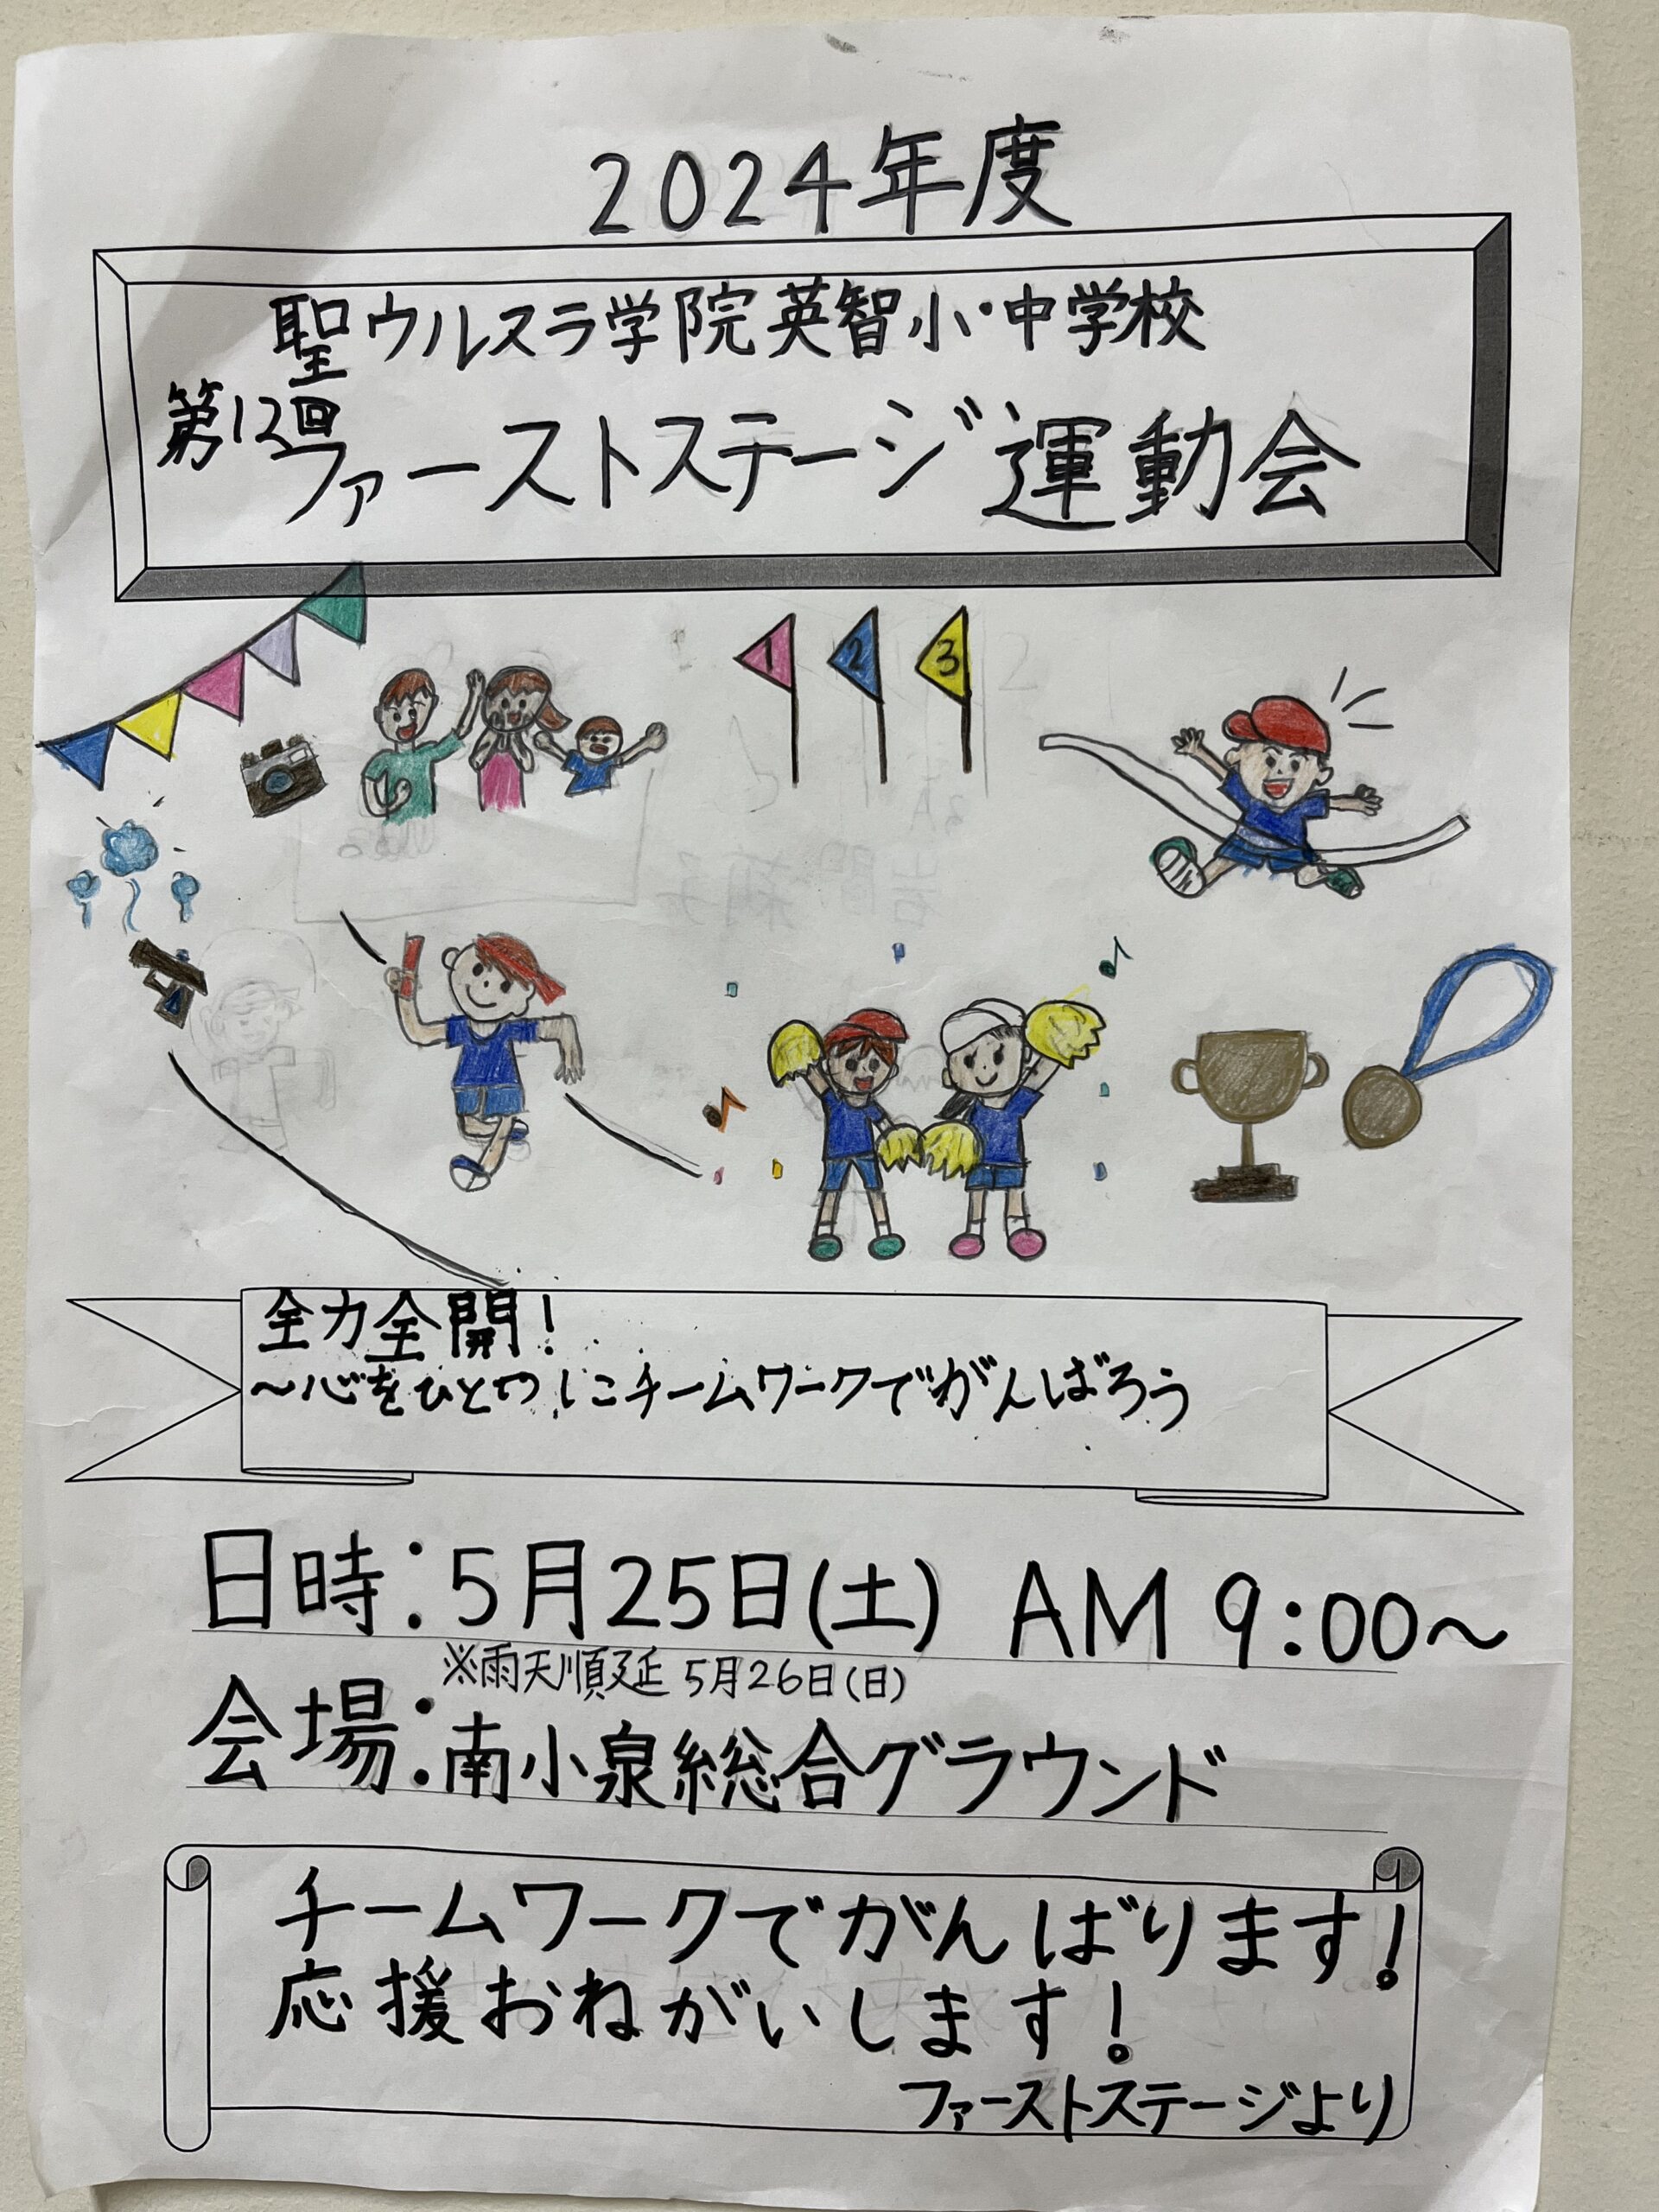 2024年度
聖ウルスラ学院英智小・中学校
第12回
ファーストステージ運動会
1 2 3
全力全開!
〜心をひとつにチームワークでがんばろう
日時:5月25日(土) AM 9:00〜
※雨天順延 5月26日(日)
会場:南小泉総合グラウンド
チームワークでがんばります!
応援おねがいします!
ファーストステージより